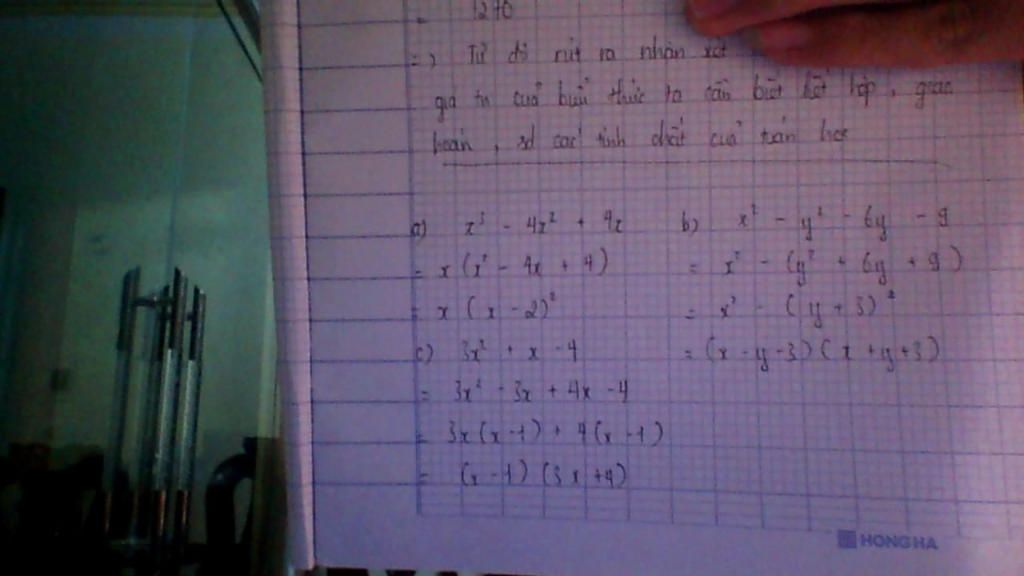 = 1270
=) Từ đó rút ra nhận xét
giá trị của biểu thức ta cần biết kết hợp, giao
hoán, sd các tính chất của toán học
a) x³ - 4x² + 4x
= x(x² - 4x + 4)
= x (x - 2)²
b) x² - y² - 6y - 9
= x² - (y² + 6y + 9)
= x² - (y + 3)²
= (x - y - 3)(x + y + 3)
c) 3x² + x - 4
= 3x² - 3x + 4x - 4
= 3x(x - 1) + 4(x - 1)
= (x - 1)(3x + 4)
HONG HA